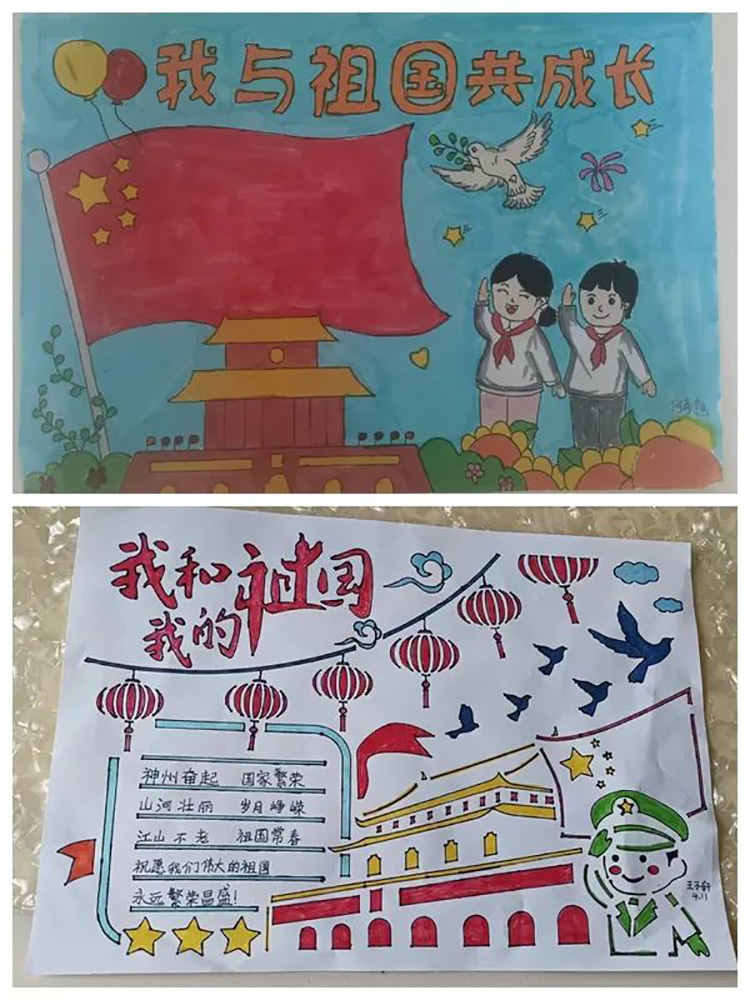 我与祖国共成长
我和祖国
我的
神州奋起 国家繁荣
山河壮丽 岁月峥嵘
江山不老 祖国常春
祝愿我们伟大的祖国
永远繁荣昌盛!
4.11